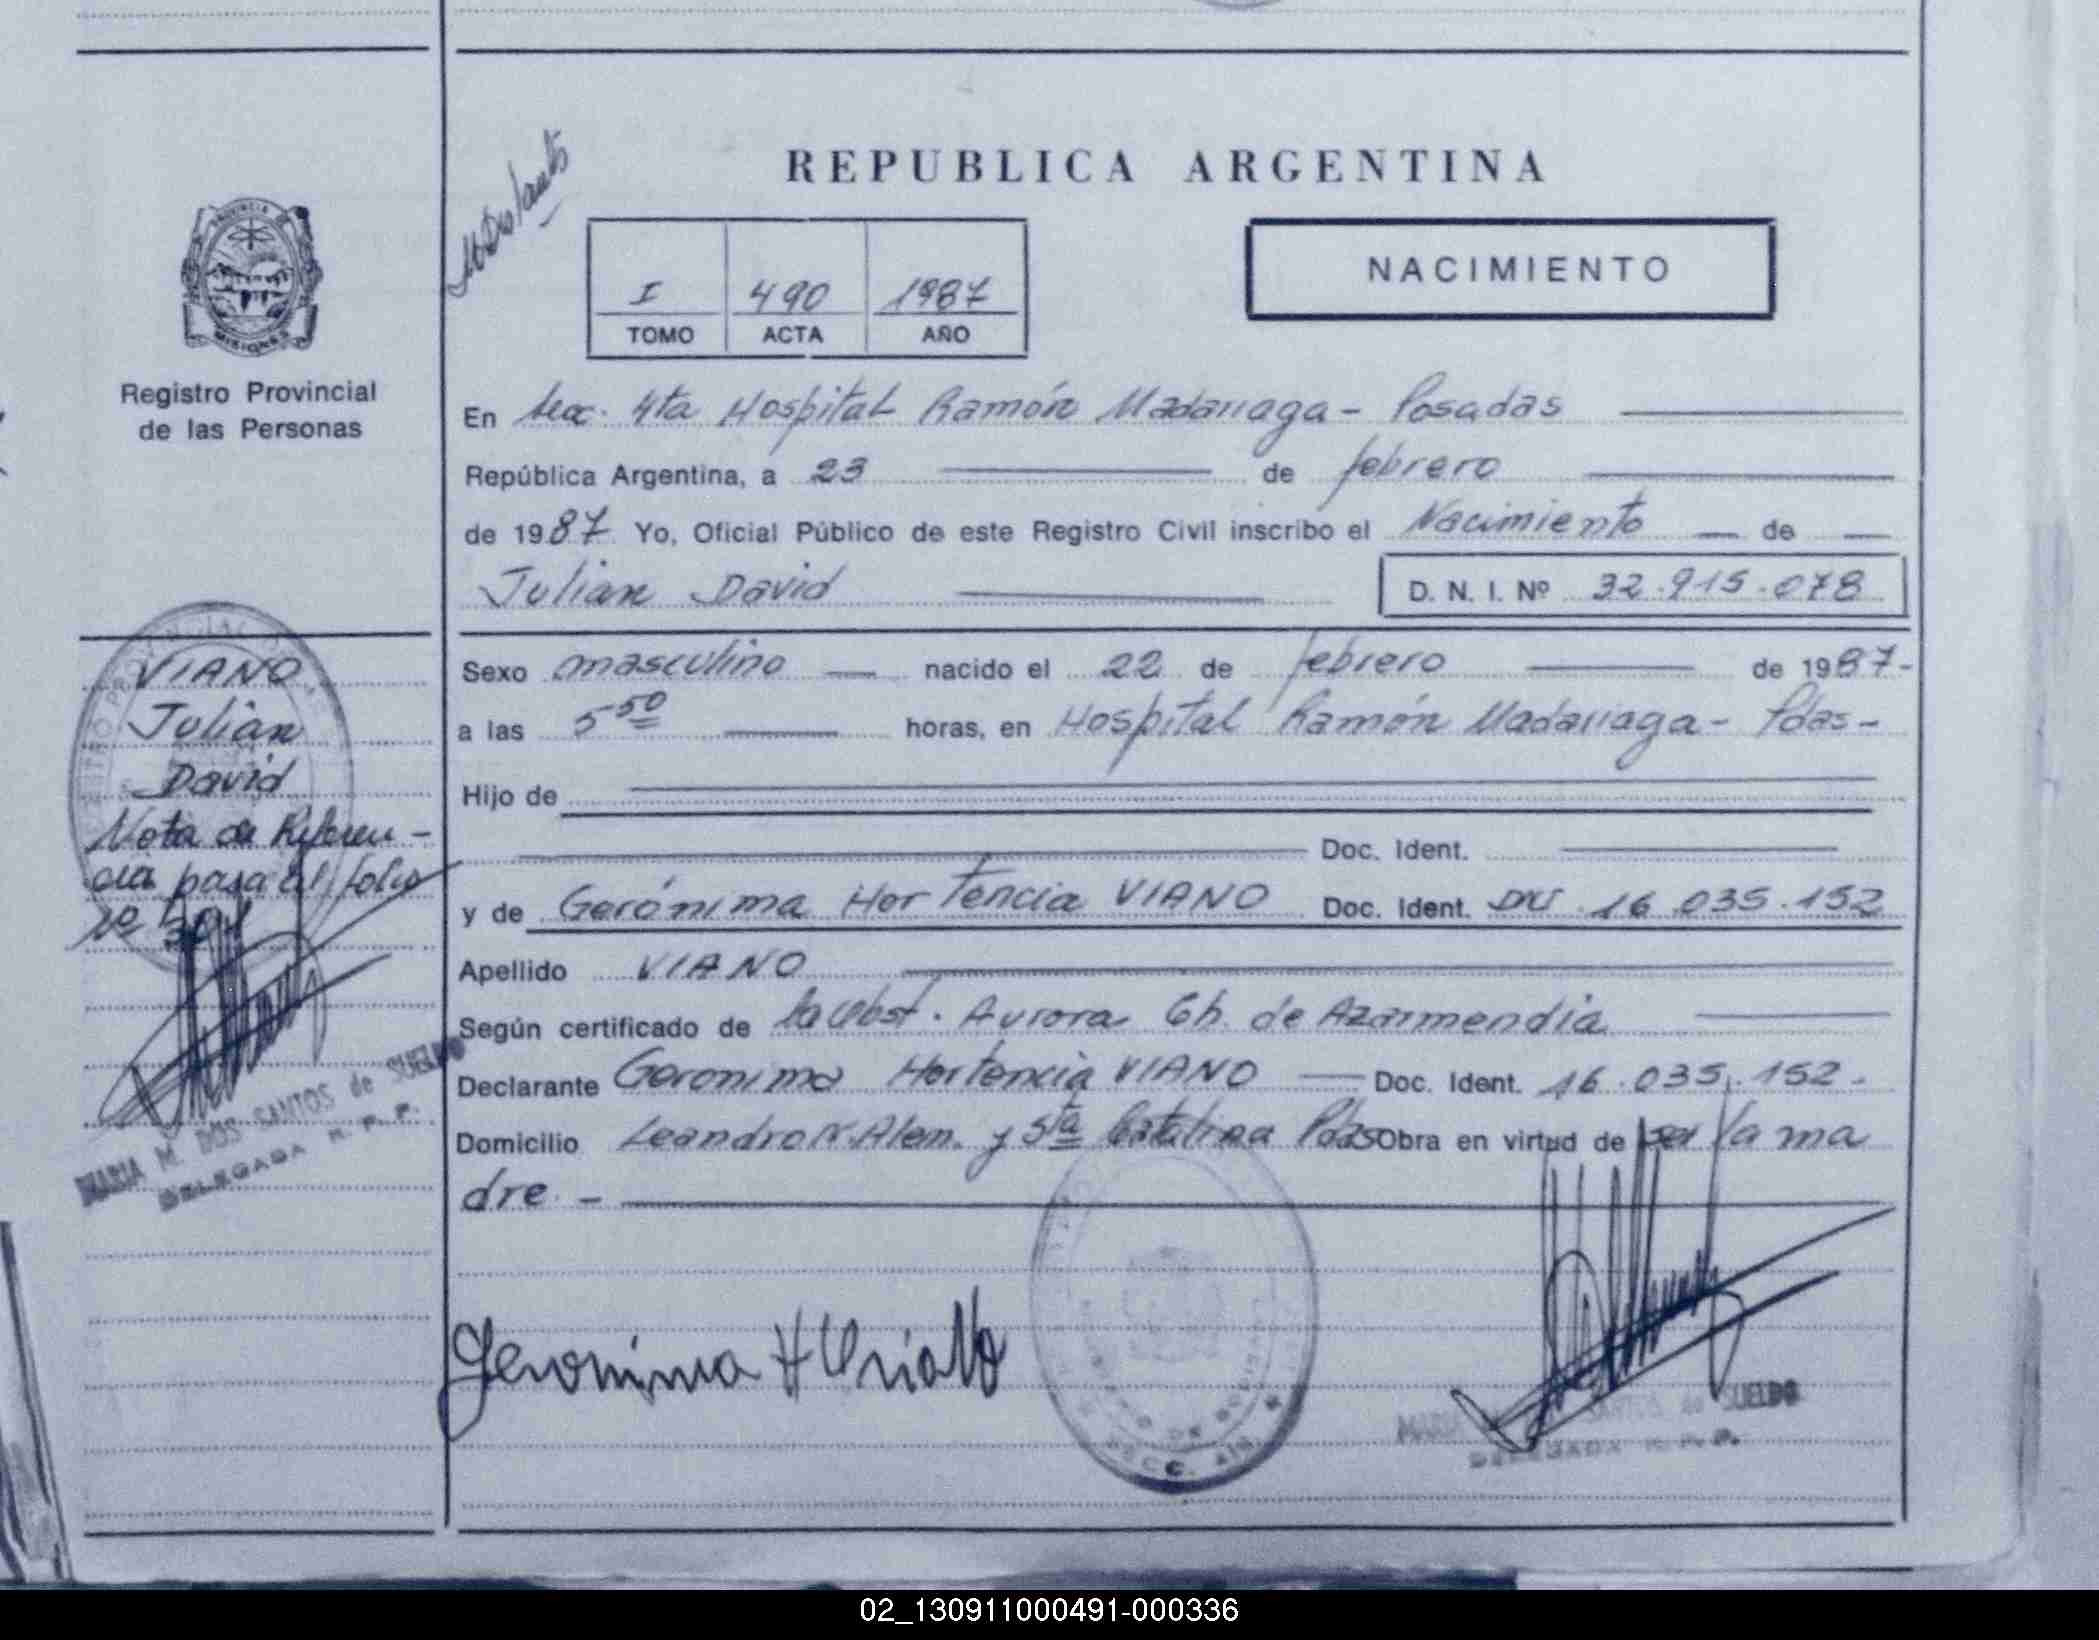 REPUBLICA ARGENTINA
NACIMIENTO
I 490 1987
TOMO ACTA AÑO
PROVINCIA DE
MISIONES
Registro Provincial
de las Personas
En Secc. 4ta Hospital Ramón Madariaga - Posadas
República Argentina, a 23 de febrero
de 1987 Yo, Oficial Público de este Registro Civil inscribo el Nacimiento de
Julian David D. N. I. Nº 32.915.078
Sexo masculino nacido el 22 de febrero de 1987-
a las 5 50 horas, en Hospital Ramón Madariaga - Pdas -
Hijo de
Doc. Ident.
y de Gerónima Hortencia VIANO Doc. Ident. DNI 16.035.152
Apellido VIANO
Según certificado de la Obst. Aurora Gh. de Azarmendia
Declarante Geronima Hortencia VIANO Doc. Ident. 16.035.152.
Domicilio Leandro N. Alem. y Sta Catalina Pdas Obra en virtud de ser la ma
dre. -
VIANO
Julian
David
Nota de Referen-
cia pasa al folio
Nº 501
MARIA M. DOS SANTOS de SUELDO
DELEGADA R. P. P.
Geronima H Viano
MARIA SANTOS de SUELDO
DELEGADA R. P. P.
02_130911000491-000336